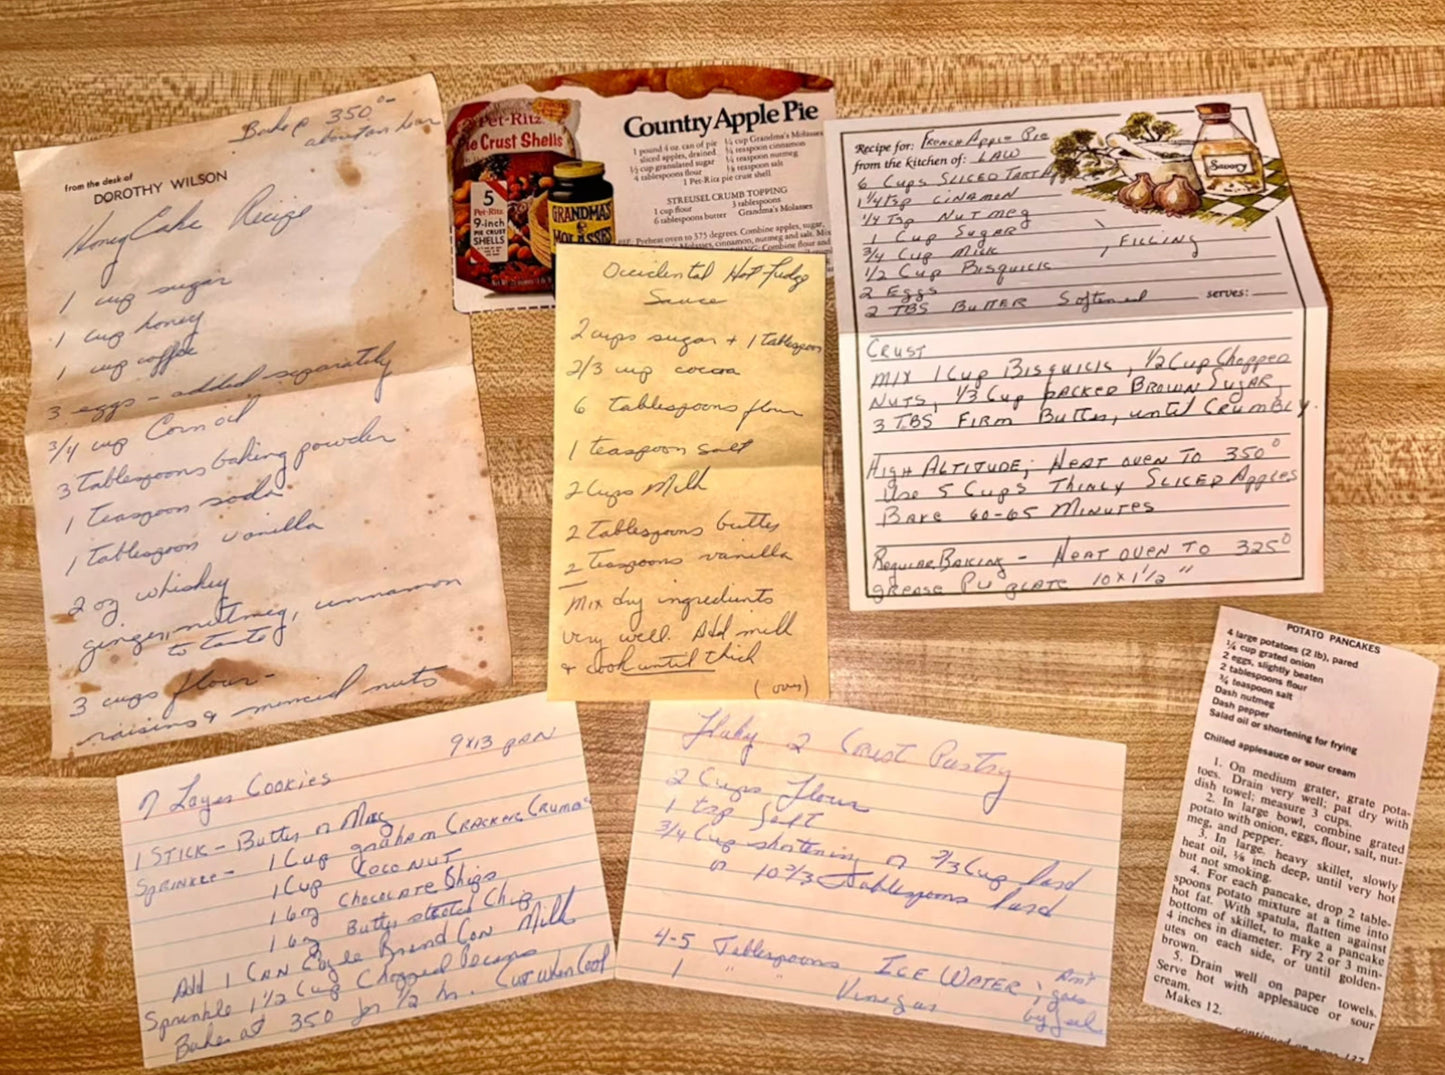 Bake @ 350° -
about an hour
from the desk of
DOROTHY WILSON
Honey Cake Recipe
1 cup sugar
1 cup honey
1 cup coffee
3 eggs - added separately
3/4 cup Corn oil
3 Tablespoons baking powder
1 teaspoon soda
1 tablespoon vanilla
2 oz whiskey
ginger, nutmeg, cinnamon
to taste
3 cups flour -
raisins & minced nuts
Pet-Ritz
Pie Crust Shells
5
Pet-Ritz
9-inch
PIE CRUST
SHELLS
GRANDMA'S
MOLASSES
Country Apple Pie
1 pound 4 oz. can of pie
sliced apples, drained
½ cup granulated sugar
4 tablespoons flour
¼ cup Grandma's Molasses
¼ teaspoon cinnamon
⅛ teaspoon nutmeg
⅛ teaspoon salt
1 Pet-Ritz pie crust shell
STREUSEL CRUMB TOPPING
1 cup flour
6 tablespoons butter
3 tablespoons
Grandma's Molasses
Preheat oven to 375 degrees. Combine apples, sugar,
Molasses, cinnamon, nutmeg and salt. Mix
Combine flour and
Occidental Hot Fudge
Sauce
2 cups sugar + 1 tablespoon
2/3 cup cocoa
6 tablespoons flour
1 teaspoon salt
2 cups Milk
2 tablespoons butter
2 teaspoons vanilla
Mix dry ingredients
very well. Add milk
& cook until thick
(over)
Recipe for: FRENCH APPLE PIE
from the kitchen of: LAW
Savory
6 CUPS SLICED TART
1 1/4 Tsp CINAMIN
1/4 Tsp NUTMEG
1 Cup SUGAR
3/4 Cup MILK
, FILLING
1/2 Cup BISQUICK
2 EGGS
2 TBS BUTTER Softened
serves:
CRUST
MIX 1 Cup BISQUICK, 1/2 Cup Chopped
NUTS, 1/3 Cup PACKED BROWN SUGAR,
3 TBS FIRM Butter, until CRUMBLY.
HIGH ALTITUDE; HEAT OVEN TO 350°
Use 5 CUPS THINLY SLICED Apples
BAKE 60-65 MINUTES
Regular BAKING - HEAT OVEN TO 325°
GREASE PIE PLATE 10 x 1 1/2"
9x13 PAN
7 Layer COOKIES
1 STICK - Butter or Marg
SPRINKLE - 1 Cup graham CRACKER CRUMBS
1 Cup COCONUT
1 6oz CHOCOLATE Chips
1 6oz Butter scotch Chip
Add 1 CAN Eagle Brand Con Milk
Sprinkle 1 1/2 Cup Chopped Pecans
Bake at 350 for 1/2 hr. Cut when Cool
Flaky 2 Crust Pastry
2 Cups flour
1 tsp Salt
3/4 Cup shortening or 2/3 Cup lard
or 10 2/3 tablespoons lard
4-5 Tablespoons ICE WATER
1 " " Vinegar
by feel
POTATO PANCAKES
4 large potatoes (2 lb), pared
¼ cup grated onion
2 eggs, slightly beaten
2 tablespoons flour
¾ teaspoon salt
Dash nutmeg
Dash pepper
Salad oil or shortening for frying
Chilled applesauce or sour cream
1. On medium grater, grate pota-
toes. Drain very well; pat dry with
dish towel; measure 3 cups.
2. In large bowl, combine grated
potato with onion, eggs, flour, salt, nut-
meg, and pepper.
3. In large, heavy skillet, slowly
heat oil, ⅛ inch deep, until very hot
but not smoking.
4. For each pancake, drop 2 table-
spoons potato mixture at a time into
hot fat. With spatula, flatten against
bottom of skillet, to make a pancake
4 inches in diameter. Fry 2 or 3 min-
utes on each side, or until golden-
brown.
5. Drain well on paper towels.
Serve hot with applesauce or sour
cream.
Makes 12.
continued on page 137